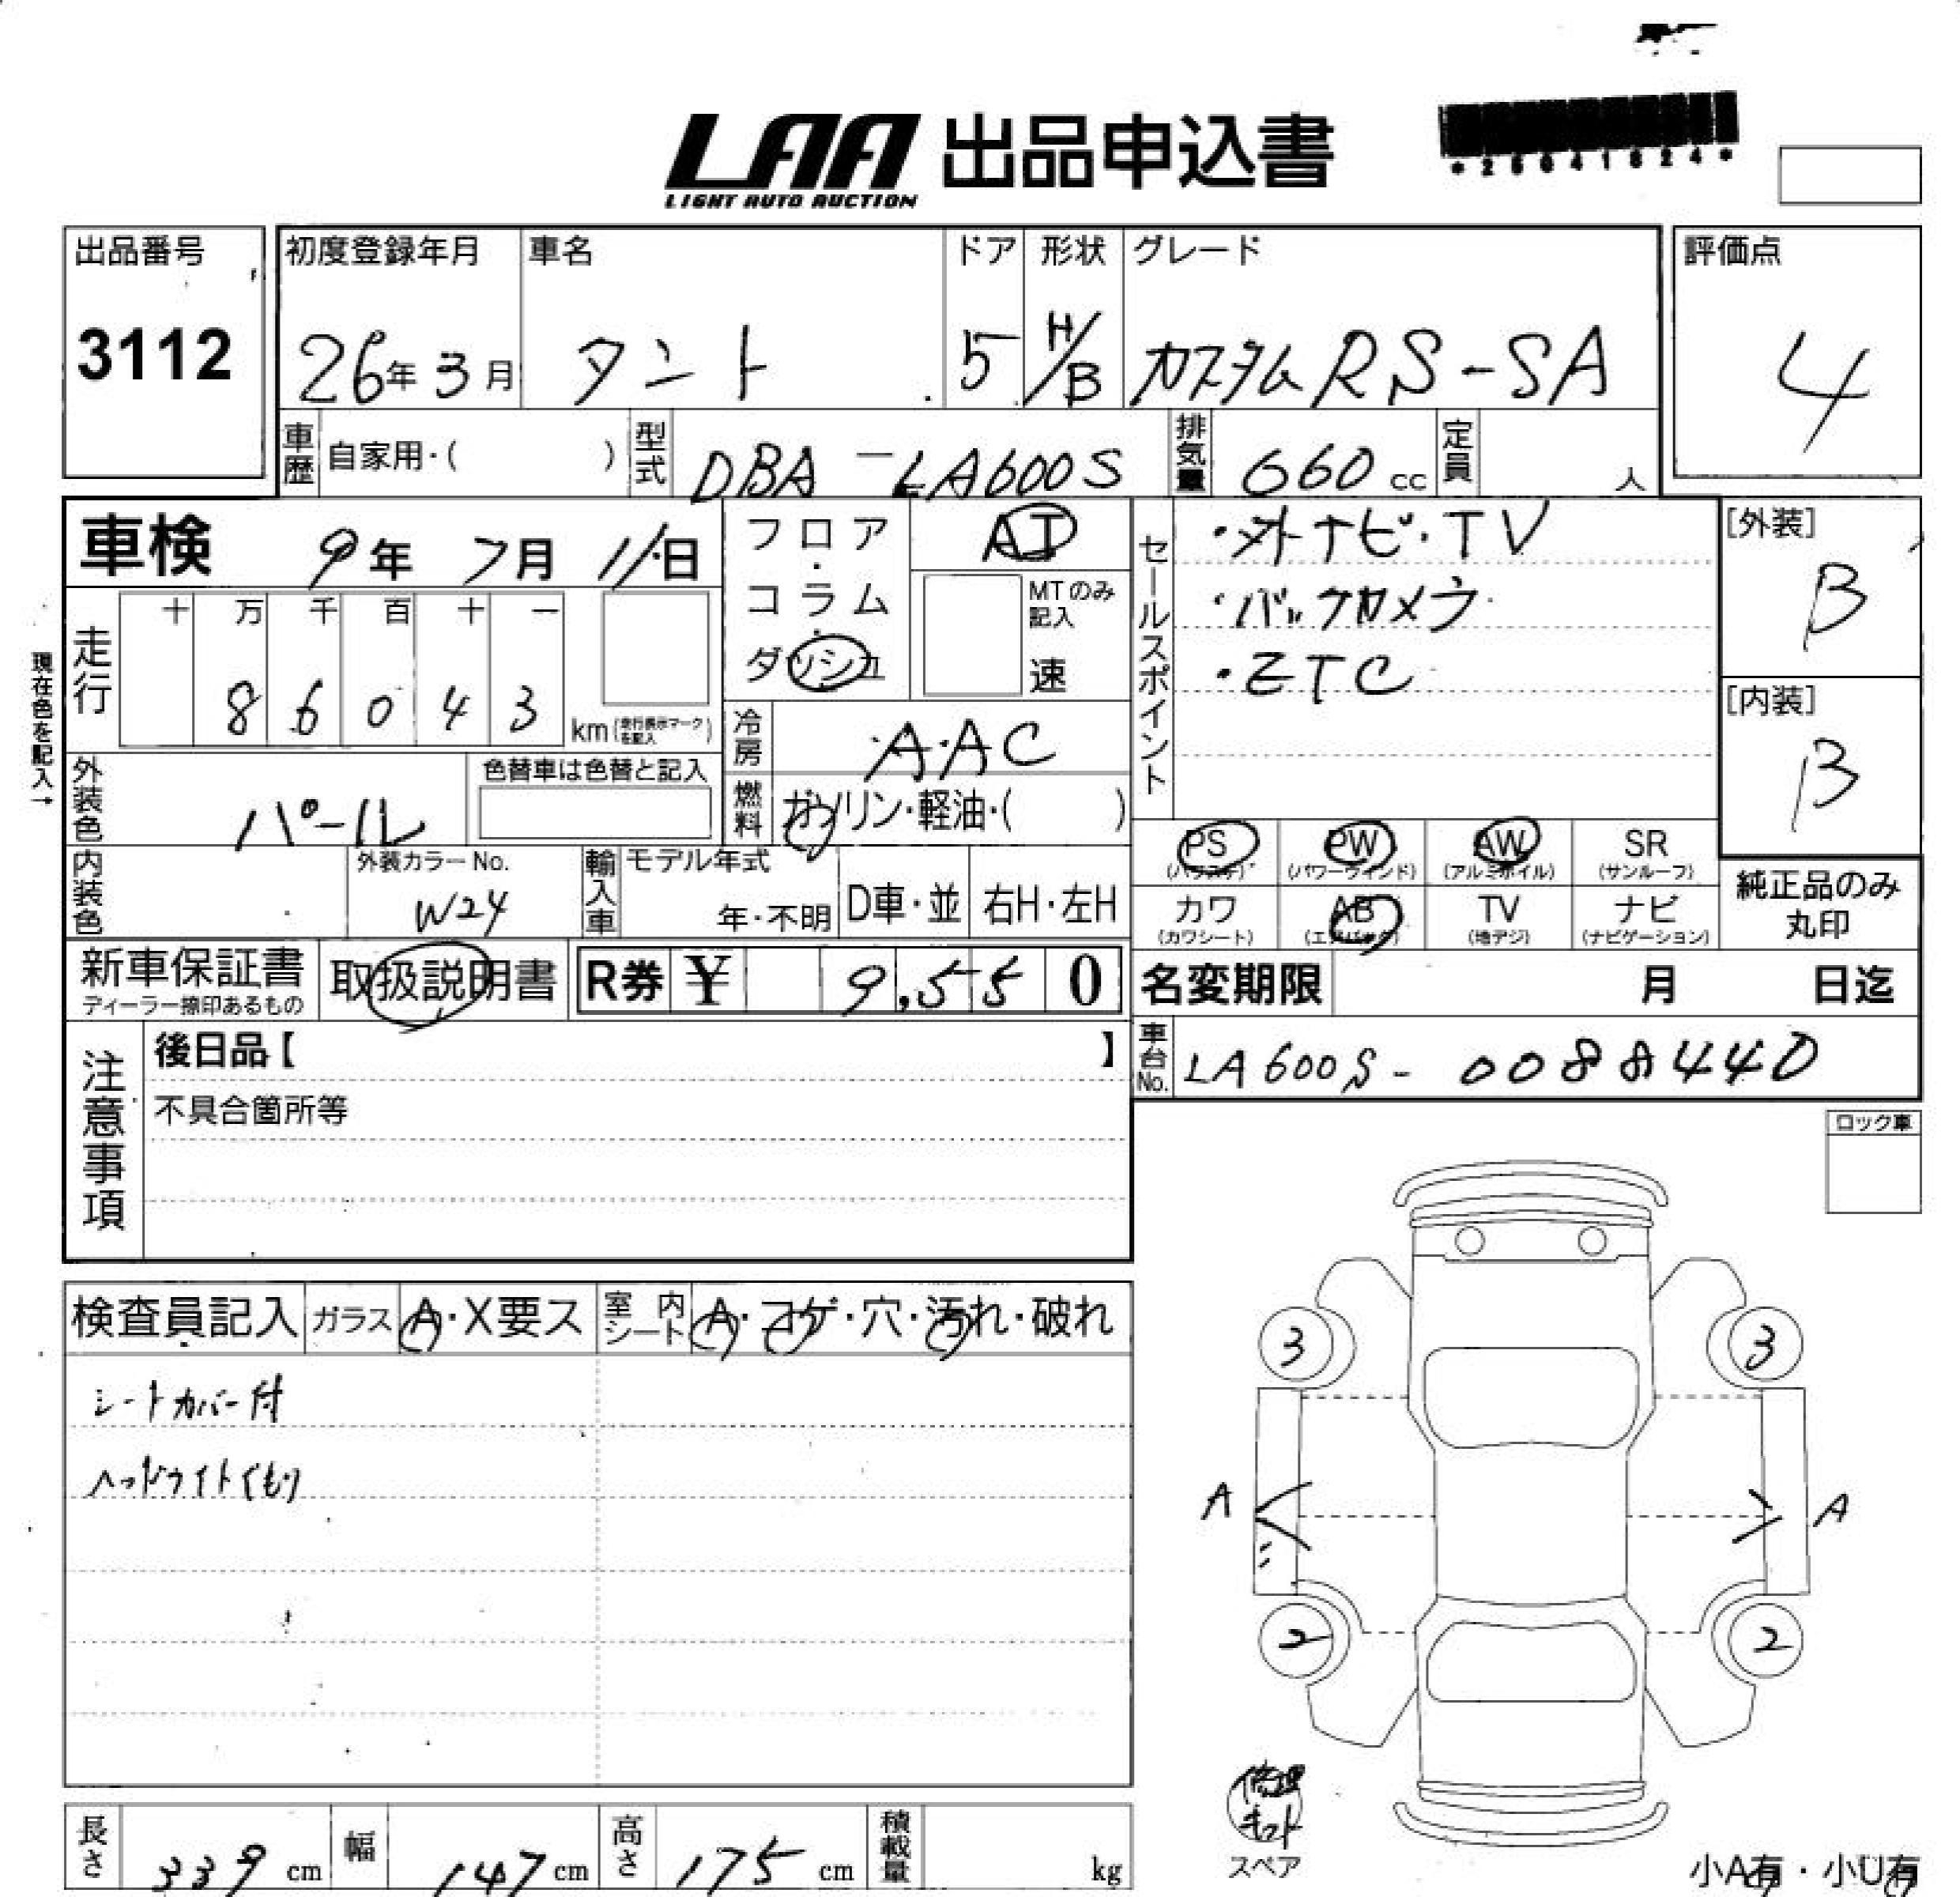 LAA 出品申込書
LIGHT AUTO AUCTION
出品番号 初度登録年月 車名 ドア 形状 グレード 評価点
3112 26年3月 タント 5 H/B カスタムRS-SA 4
車歴 自家用・( ) 型式 DBA-LA600S 排気量 660cc 定員 人
車検 9年 7月 11日
フロア・コラム・ダッシュ AT
MTのみ記入 速
セールスポイント
・外ナビ・TV
・バックカメラ
・ETC
[外装] B
[内装] B
現在色を記入→
走行 十 万 千 百 十 一
8 6 0 4 3 km(走行表示マークを記入)
冷房 AAC
外装色 パール 色替車は色替と記入
燃料 ガソリン・軽油・( )
PS PW AW SR
(パワステ) (パワーウィンド) (アルミホイル) (サンルーフ)
内装色 外装カラーNo. W24 輸入車 モデル年式 年・不明 D車・並 右H・左H
カワ AB TV ナビ
(カワシート) (エアバック) (地デジ) (ナビゲーション)
純正品のみ丸印
新車保証書 取扱説明書 R券 ¥ 9,550
ディーラー捺印あるもの
名変期限 月 日迄
注意事項 後日品【 】
車台No. LA600S-0088440
不具合箇所等
ロック車
検査員記入 ガラス A・X要ス 室内シート A・コゲ・穴・汚れ・破れ
シートカバー付
ヘッドライトくもり
3 3
A A
2 2
修理キット
スペア
長さ 339cm 幅 147cm 高さ 175cm 積載量 kg
小A有・小U有